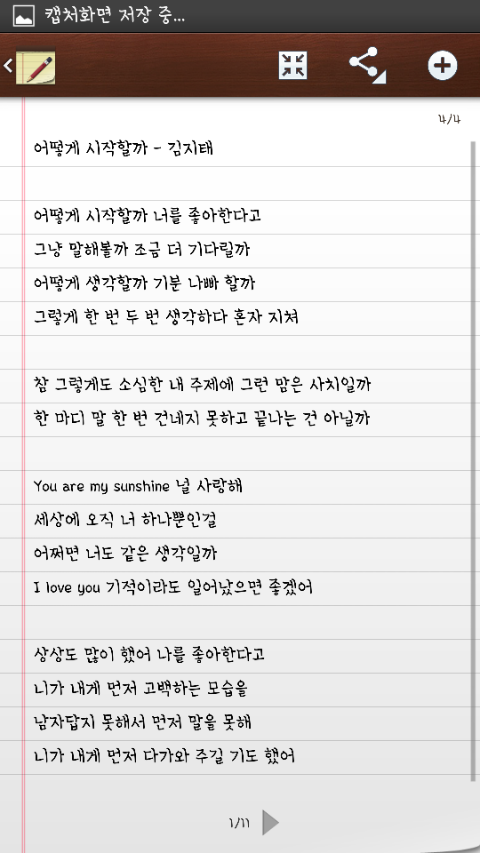 캡처화면 저장 중...
4/4
어떻게 시작할까 - 김지태
어떻게 시작할까 너를 좋아한다고
그냥 말해볼까 조금 더 기다릴까
어떻게 생각할까 기분 나빠 할까
그렇게 한 번 두 번 생각하다 혼자 지쳐
참 그렇게도 소심한 내 주제에 그런 맘은 사치일까
한 마디 말 한 번 건네지 못하고 끝나는 건 아닐까
You are my sunshine 널 사랑해
세상에 오직 너 하나뿐인걸
어쩌면 너도 같은 생각일까
I love you 기적이라도 일어났으면 좋겠어
상상도 많이 했어 나를 좋아한다고
니가 내게 먼저 고백하는 모습을
남자답지 못해서 먼저 말을 못해
니가 내게 먼저 다가와 주길 기도 했어
1/11